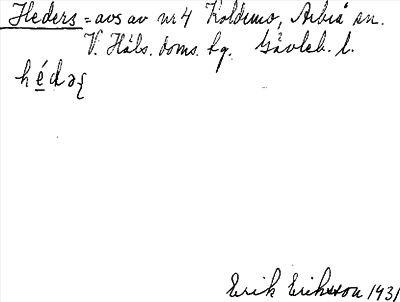 Heders = avs av nr 4 Koldemo, Arbrå sn.
V. Häls. doms. hg. Gävleb. l.
hédəɽ
Erik Eriksson 1931